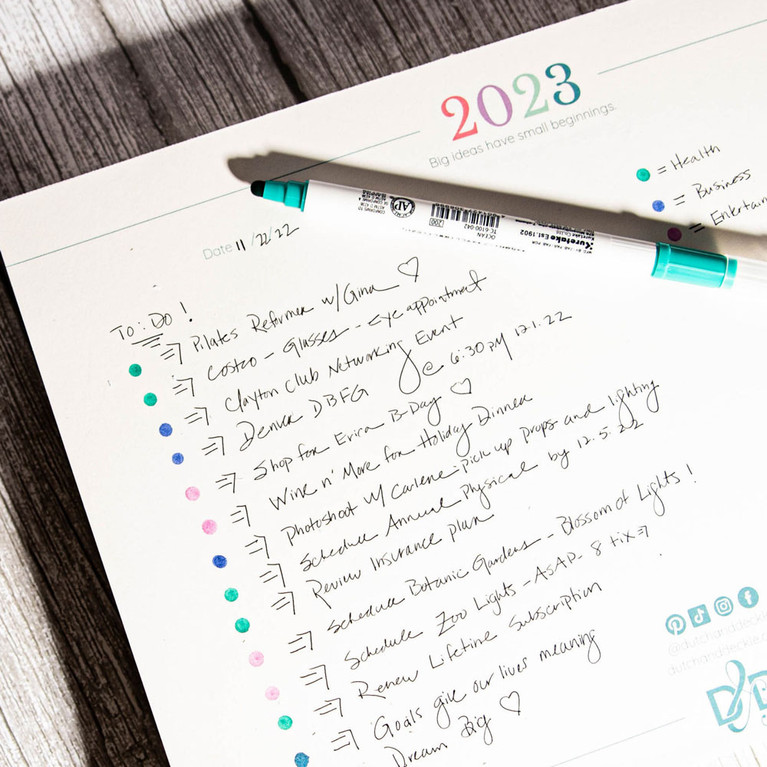 2023
Big ideas have small beginnings.
= Health
= Business
= Entertain
Date 11/22/22
CONFORMS TO ASTM D 4236
AP
200
TC-6100-042
OCEAN
Kuretake Est. 1902
To: Do!
Pilates Reformer w/Gina ♡
Costco - Glasses - Eye appointment
Clayton Club Networking Event
Denver DBFG @ 6:30pm 12.1.22
Shop for Erica B-Day ♡
Wine n' More for Holiday Dinner
Photoshoot w/ Carlene - pick up props and lighting
Schedule Annual Physical by 12.5.22
Review Insurance plan
Schedule Botanic Gardens - Blossom of Lights!
Schedule Zoo Lights - ASAP - 8 tix ⇒
Renew Lifetime Subscription
Goals give our lives meaning
Dream Big ♡
@dutchanddeckle
dutchanddeckle.c
D&D